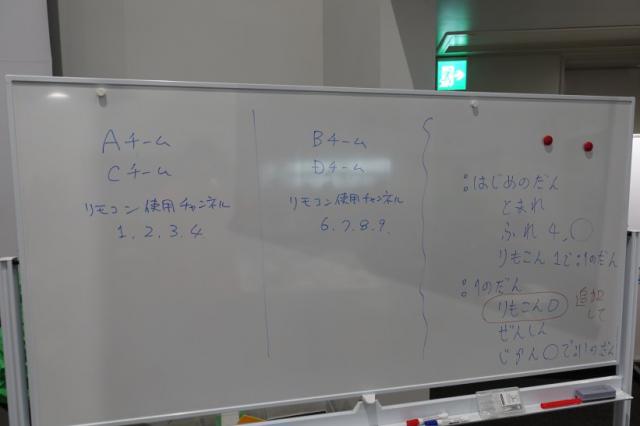 Aチーム
Cチーム
リモコン使用チャンネル
1.2.3.4
Bチーム
Dチーム
リモコン使用チャンネル
6.7.8.9.
:はじめのだん
とまれ
ふれ 4,○
りもこん 1で:1のだん
:1のだん
りもこん0
追加して
ぜんしん
じかん○で:1のだん